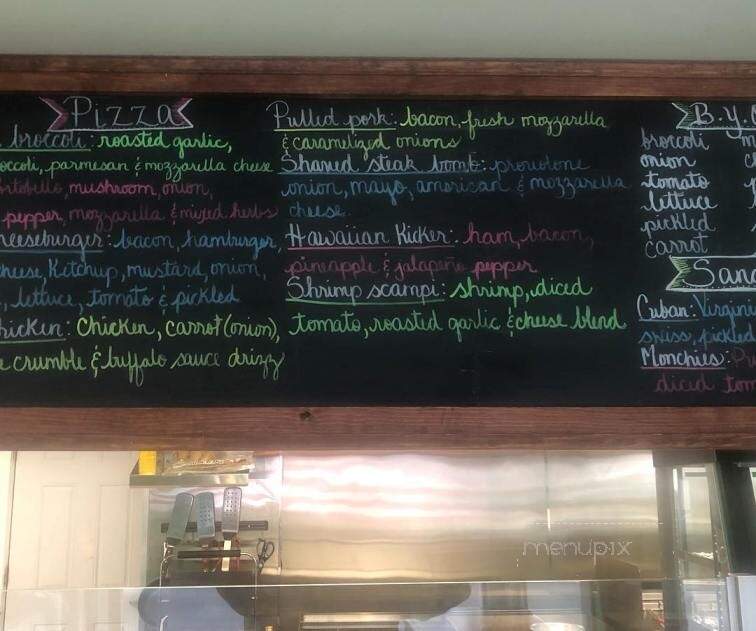 Pizza
broccoli: roasted garlic,
occoli, parmesan & mozzarella cheese
ortobello, mushroom, onion,
pepper, mozzarella & mixed herbs
heeseburger: bacon, hamburger,
cheese, Ketchup, mustard, onion,
, lettuce, tomato & pickled
hicken: Chicken, carrot (onion),
e crumble & buffalo sauce drizzy
Pulled pork: bacon, fresh mozzarella
& caramelized onions
Shaved steak bomb: provolone
onion, mayo, american & mozzarella
cheese.
Hawaiian Kicker: ham, bacon,
pineapple & jalapeño pepper
Shrimp scampi: shrimp, diced
tomato, roasted garlic & cheese blend
B.Y.
broccoli
onion
tomato
lettuce
pickled
carrot
Sand
Cuban: Virginia
swiss, pickled
Monchies: Pr
diced tom
menupix